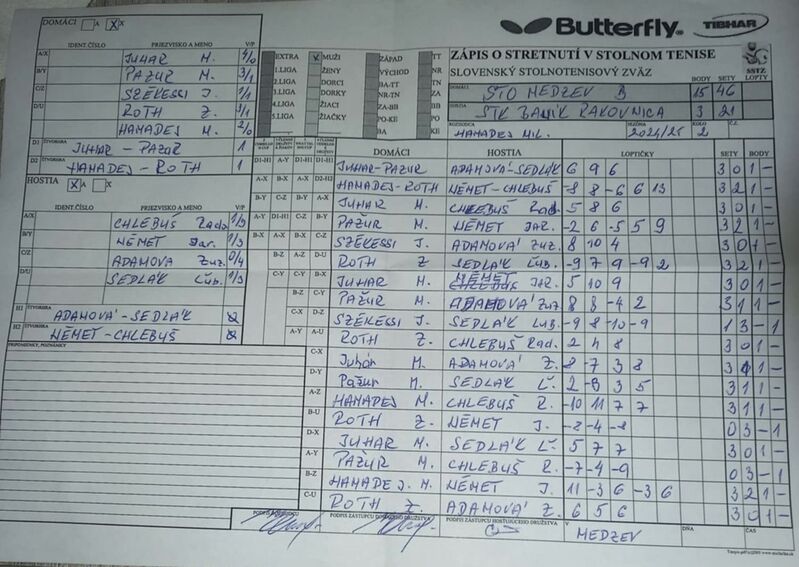 DOMÁCI A X
Butterfly TIBHAR
IDENT. ČÍSLO PRIEZVISKO A MENO V/P
A/X JUHAR M. 4/0
B/Y PAŽUR M. 3/1
C/Z SZÉKESSI J. 1/1
D/U ROTH Z. 3/1
HAMADEJ M. 2/0
D1 ŠTVORHRA JUHAR - PAŽUR 1
D2 HAMADEJ - ROTH 1
EXTRA X MUŽI ZÁPAD TT
1.LIGA ŽENY VÝCHOD NR
2.LIGA DORCI BA-TT TN
3.LIGA DORKY NR-TN ZA
4.LIGA ŽIACI ZA-BB BB
5.LIGA ŽIAČKY PO-KE PO
BA KE
ZÁPIS O STRETNUTÍ V STOLNOM TENISE
SLOVENSKÝ STOLNOTENISOVÝ ZVÄZ SSTZ
BODY SETY LOPTY
DOMÁCI STO MEDZEV B 15 46
HOSTIA STK BANÍK RAKOVNICA 3 21
ROZHODCA HAMADEJ MIL. SEZÓNA 2024/25 KOLO 2 Č.Z.
HOSTIA X X
IDENT. ČÍSLO PRIEZVISKO A MENO V/P
A/X CHLEBUŠ Rad. 1/3
B/Y NÉMET Jar. 1/3
C/Z ADAMOVÁ Zuz. 0/4
D/U SEDLÁK Ľub. 1/3
H1 ŠTVORHRA ADAMOVÁ - SEDLÁK
H2 ŠTVORHRA NÉMET - CHLEBUŠ
PRIPOMIENKY, POZNÁMKY
DOMÁCI HOSTIA LOPTIČKY SETY BODY
D1-H1 A-Y D1-H1 D1-H1 JUHAR-PAŽUR ADAMOVÁ-SEDLÁK 6 9 6 3 0 1 -
A-X B-X A-X D2-H2 HAMADEJ-ROTH NÉMET-CHLEBUŠ -8 8 -6 6 13 3 2 1 -
B-Y C-Z B-Y A-X JUHAR M. CHLEBUŠ Rad. 5 8 6 3 0 1 -
A-Y D1-H1 C-Z B-Y PAŽUR M. NÉMET JAR. -2 6 -5 5 9 3 2 1 -
B-X A-X B-X C-Z SZÉKESSI J. ADAMOVÁ Zuz. 8 10 4 3 0 1 -
B-Z A-Z D-U ROTH Z SEDLÁK Ľub. -9 7 9 -9 2 3 2 1 -
C-Y C-Y B-X JUHAR M. NÉMET JAR. 5 10 9 3 0 1 -
B-Z C-Y PAŽUR M. ADAMOVÁ Zuz 8 8 -4 2 3 1 1 -
C-X D-Z SZÉKESSI J. SEDLÁK Ľub. -9 8 -10 -9 1 3 - 1
A-Y A-U ROTH Z. CHLEBUŠ Rad. 2 4 8 3 0 1 -
C-X Juhár M. ADAMOVÁ Z. 8 -7 3 8 3 1 1 -
D-Y Pažur M. SEDLÁK Ľ. 2 -8 3 5 3 1 1 -
A-Z HAMADEJ M. CHLEBUŠ R. -10 11 7 7 3 1 1 -
B-U ROTH Z. NÉMET J -2 -4 -8 0 3 - 1
D-X JUHAR M. SEDLÁK Ľ. 5 7 7 3 0 1 -
A-Y PAŽUR M. CHLEBUŠ R. -7 -4 -9 0 3 - 1
B-Z HAMADEJ. M. NÉMET J. 11 -3 6 -3 6 3 2 1 -
C-U ROTH Z. ADAMOVÁ Z. 6 5 6 3 0 1 -
PODPIS ROZHODCU PODPIS ZÁSTUPCU DOMÁCEHO DRUŽSTVA PODPIS ZÁSTUPCU HOSŤUJÚCEHO DRUŽSTVA V MEDZEV DŇA ČAS